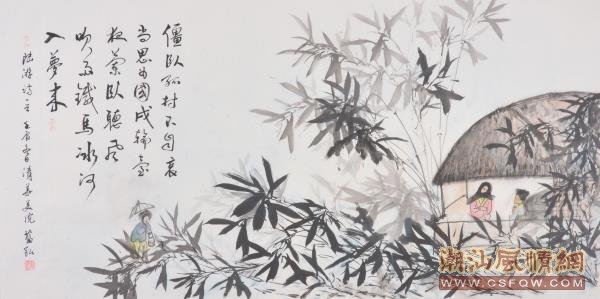 僵臥孤村不自哀
尚思為國戍輪臺
夜闌臥聽風
吹雨鐵馬冰河
入夢來
陸游詩意 清華美院
潮汕風情網
WWW.CSFQW.COM